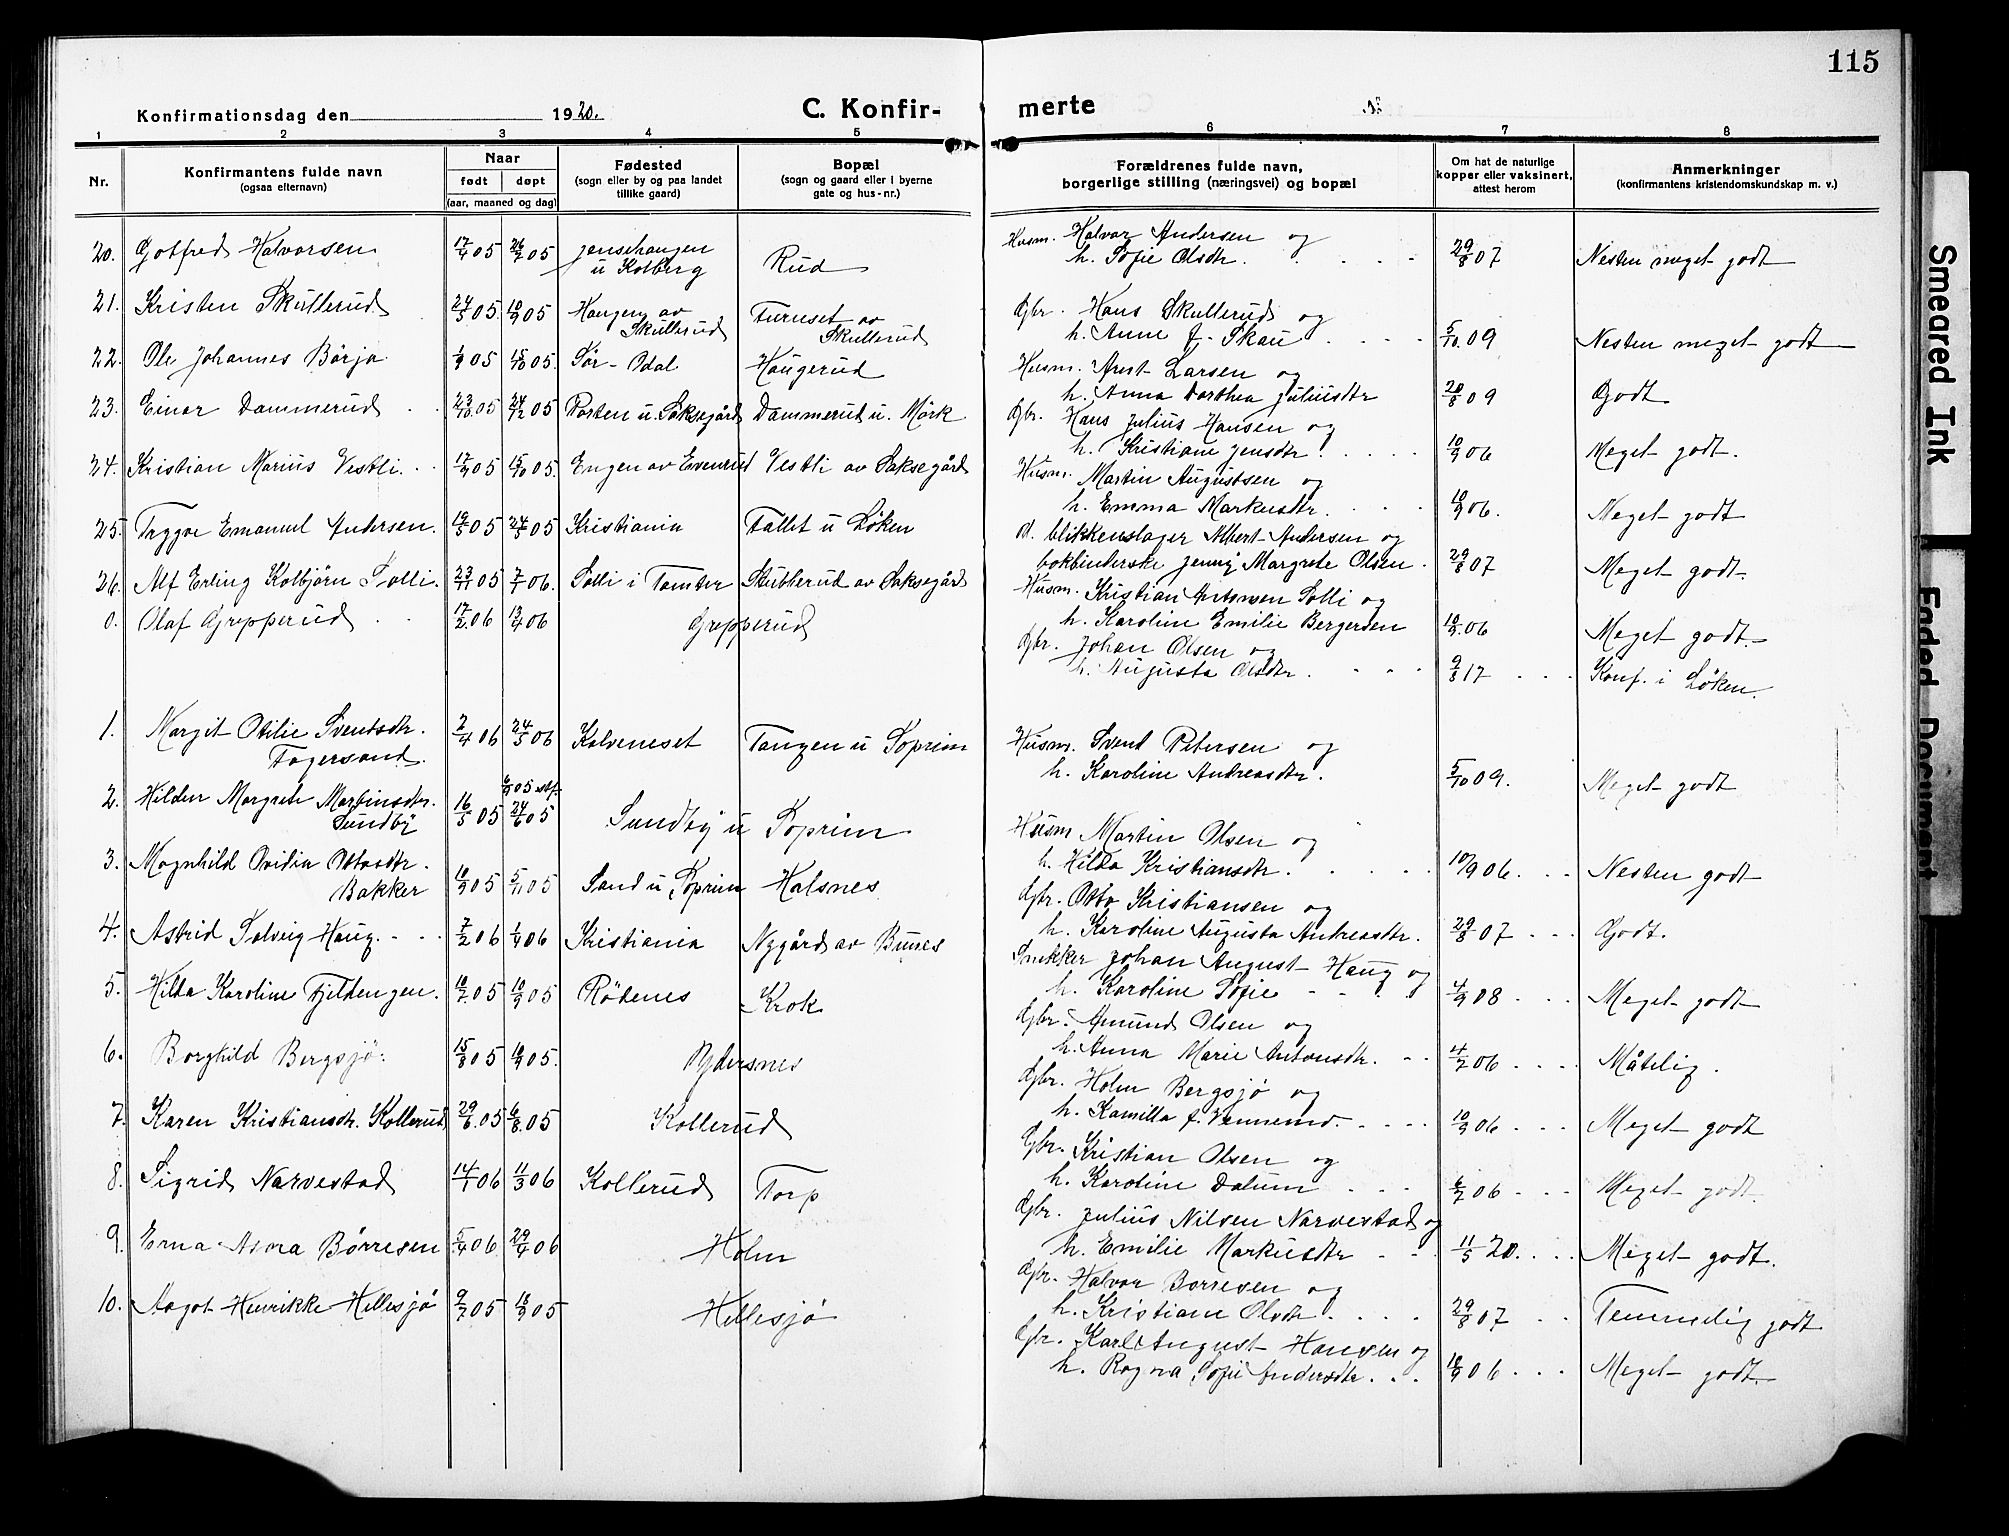 115
Konfirmationsdag den 1920.
C. Konfir-
merte
1 2 3 4 5 6 7 8
Nr.
Konfirmantens fulde navn
(ogsaa efternavn)
Naar
født døpt
(aar, maaned og dag)
Fødested
(sogn eller by og paa landet
tillike gaard)
Bopæl
(sogn og gaard eller i byerne
gate og hus-nr.)
Forældrenes fulde navn,
borgerlige stilling (næringsvei) og bopæl
Om hat de naturlige
kopper eller vaksinert,
attest herom
Anmerkninger
(konfirmantens kristendomskundskap m. v.)
20. Gotfred Halvorsen 17/4 05 26/2 05 Jensehaugen
u Kolberg Rud
Husm. Halvor Andersen og
h. Sofie Olsdtr. 29/8 07 Nesten meget godt
21. Kristen Skullerud 24/5 05. 10/9 05 Haugen av
Skullerud Furuset av
Skullerud
Gbr. Hans Skullerud og
h. Anne f. Skau 5/10. 09 Nesten meget godt
22. Ole Johannes Börja 1/9 05 15/10 05. Sör-Odal Haugerud
Husm. Arnt Larsen og
h. Anna Dorthea Juliusdtr 20/8 09 Godt
23. Einar Dammerud 23/10. 05 24/12 05 Porten u. Saksegård Dammerud u. Mörk
Gbr. Hans Julius Hansen og
h. Kristiane Jensdtr. 10/9 06 Meget godt.
24. Kristian Marius Vestli. 17/9 05 15/10 05. Engen av Evenrud Vestli av Saksegård
Husm. Martin Augustsen og
h. Emma Markusdtr. 10/9 06. Meget godt
25. Trygve Emanuel Andersen. 19/3 05 24/5 05 Kristiania Fallet u Löken
d. blikkenslager Albert Andersen og
bokbinderske Jenny Margrete Olsen. 29/8 07 Meget godt.
26. Alf Erling Kolbjörn Solli. 23/11 05 7/1 06. Solli i Tomter Stubberud av Saksegård
Husm. Kristian Antonsen Solli og
h. Karoline Emilie Bergersen 10/9. 06 Meget godt.
0. Olaf Grepperud 17/2. 06 13/4 06 Grepperud
Gbr. Johan Olsen og
h. Augusta Olsdtr. 9/8 17 Konf. i Löken.
1. Margit Otilie Svensdtr.
Fagersand. 2/4 06 24/5 06 Kolveneset Tangen u Soprim
Husm. Svend Petersen og
h. Karoline Andreasdtr. 5/10 09. Meget godt
2. Hilden Margrete Martinsdtr.
Sundby 16/5 05 24/6 05 Sundby u Soprim
Husm Martin Olsen og
h. Hilda Kristiansdtr. 10/9 06. Nesten godt
3. Magnhild Ovidia Ottosdtr.
Bakker 10/9 05 5/11 05 Sand u Soprim Halsnes
Gbr. Otto Kristiansen og
h. Karoline Augusta Andreasdtr. 29/8 07 Godt.
4. Astrid Solveig Haug. 7/2 06 1/4 06 Kristiania Nygård av Bunes
Snekker Johan August Haug og
h. Karoline Sofie 4/9 08 Meget godt
5. Hilda Karoline Fjeldengen. 18/7. 05 10/9 05 Rödenes Krok
Gbr. Amund Olsen og
h. Anna Marie Antonsdtr. 4/2 06 Måtelig.
6. Borghild Bergsjö. 15/8 05 10/9 05. Ydersnes
Gbr. Holm Bergsjö og
h. Kamilla f. Vennemo. 10/9 06 Meget godt
7. Karen Kristiansdtr. Kollerud 29/6. 05 6/8. 05 Kollerud
Gbr. Kristian Olsen og
h. Karoline Dalum 6/2 06 Meget godt.
8. Sigrid Narvestad 14/1 06 11/3 06 Kollerud Torp
Gbr. Julius Nilsen Narvestad og
h. Emilie Markusdtr 11/5 20. Meget godt.
9. Erna Asora Börresen 5/4 06. 29/4 06 Holm
Gbr. Halvor Börresen og
h. Kristiane Olsdtr. 29/8 07 Temmelig godt
10. Aagot Henrikke Hillesjö 9/7. 05 18/9 05 Hillesjö
Gbr. Karl August Hansen og
h. Ragna Sofie Andersdtr. 10/9 06 Meget godt.
Smeared Ink
Faded Document